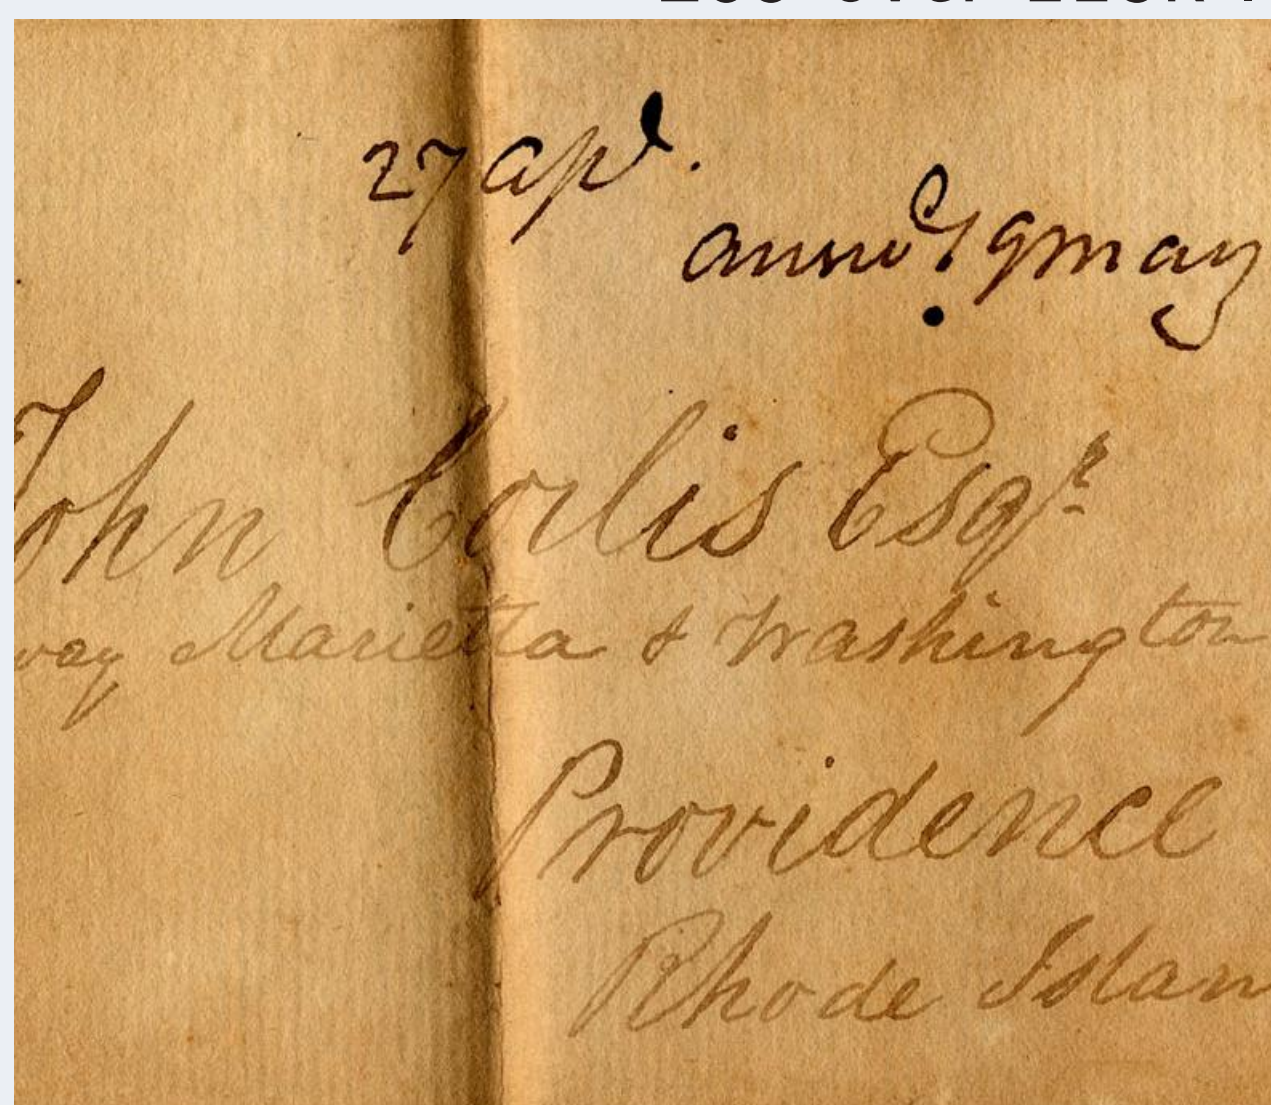 27 apl.
answd 9 may
John Corlis Esqr.
Marietta & Washington
Providence
Rhode Islan